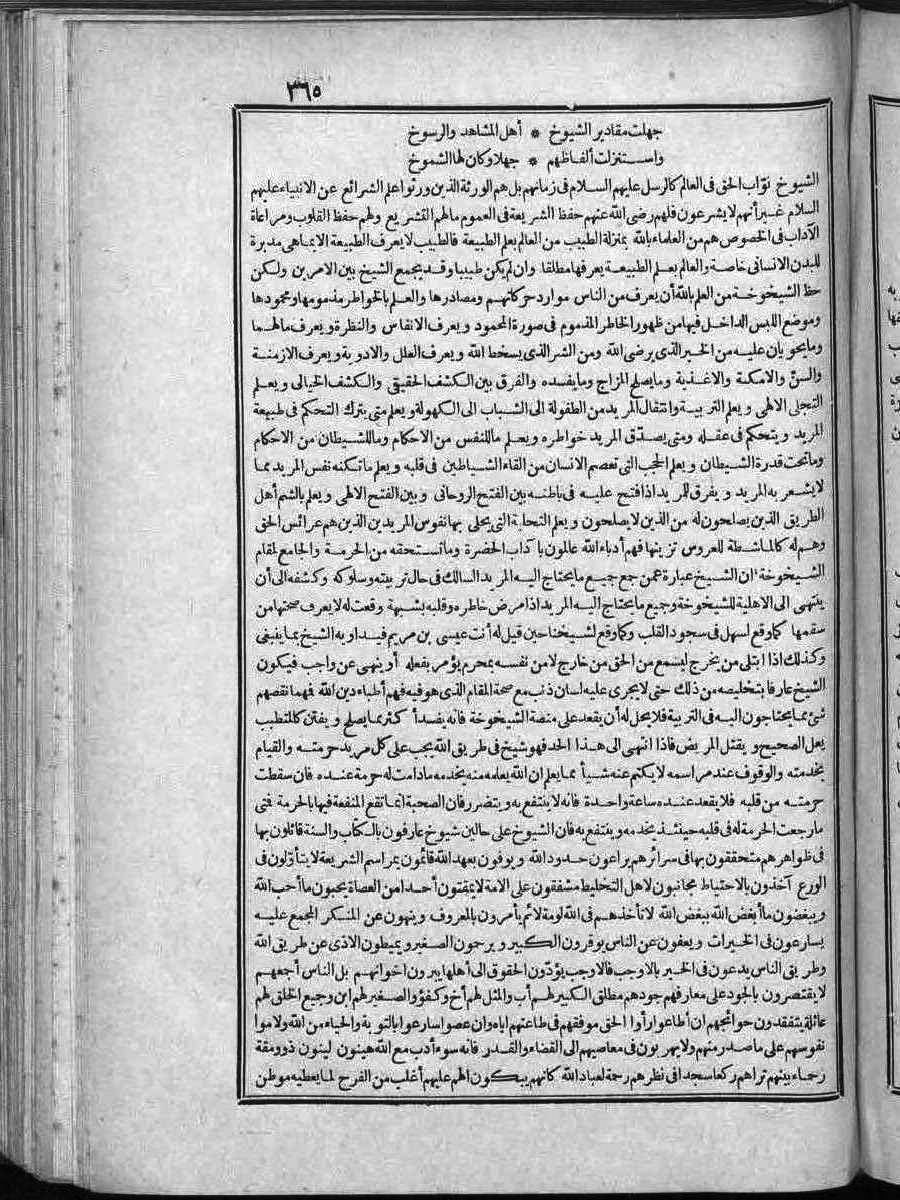 ٣٦٥
جهلت مقادير الشيوخ * أهل المشاهد والرسوخ
واستنزلت ألفاظهم * جهلا وكان لها الشموخ
الشيوخ نوّاب الحق فى العالم كالرسل عليهم السلام فى زمانهم بل هم الورثة الذين ورثوا علم الشرائع عن الانبياء عليهم
السلام غير أنهم لا يشرعون فلهم رضى الله عنهم حفظ الشريعة فى العموم ما لهم التشريع ولهم حفظ القلوب ومراعاة
الآداب فى الخصوص هم من العلماء بالله بمنزلة الطبيب من العالم بعلم الطبيعة فالطبيب لا يعرف الطبيعة الا بما هى مدبرة
للبدن الانسانى خاصة والعالم بعلم الطبيعة يعرفها مطلقا وان لم يكن طبيبا وقد يجمع الشيخ بين الامرين ولكن
حظ الشيخوخة من العلم بالله أن يعرف من الناس موارد حركاتهم ومصادرها والعلم بالخواطر مذمومها ومحمودها
وموضع اللبس الداخل فيها من ظهور الخاطر المذموم فى صورة المحمود ويعرف الانفاس والنظرة ويعرف ما لهما
وما يحويان عليه من الخير الذى يرضى الله ومن الشر الذى يسخط الله ويعرف العلل والادوية ويعرف الازمنة
والسنّ والامكنة والاغذية وما يصلح المزاج وما يفسده والفرق بين الكشف الحقيقى والكشف الخيالى ويعلم
التجلى الالهى ويعلم التربية وانتقال المريد من الطفولة الى الشباب الى الكهولة ويعلم متى يترك التحكم فى طبيعة
المريد ويتحكم فى عقله ومتى يصدّق المريد خواطره ويعلم ما للنفس من الاحكام وما للشيطان من الاحكام
وما تحت قدرة الشيطان ويعلم الحجب التى تعصم الانسان من القاء الشياطين فى قلبه ويعلم ما تكنه نفس المريد مما
لا يشعر به المريد ويفرق للمريد اذا فتح عليه فى باطنه بين الفتح الروحانى وبين الفتح الالهى ويعلم بالشم أهل
الطريق الذين يصلحون له من الذين لا يصلحون ويعلم التحلية التى يحلى بها نفوس المريدين الذين هم عرائس الحق
وهم له كالماشطة للعروس تزينها فهم أدباء الله عالمون بآداب الحضرة وما تستحقه من الحرمة والجامع لمقام
الشيخوخة ان الشيخ عبارة عمن جمع جميع ما يحتاج اليه المريد السالك فى حال تربيته وسلوكه وكشفه الى أن
ينتهى الى الاهلية للشيخوخة وجميع ما يحتاج اليه المريد اذا مرض خاطره وقلبه بشبهة وقعت له لا يعرف صحتها من
سقمها كما وقع لسهل فى سجود القلب وكما وقع لشيخنا حين قيل له أنت عيسى بن مريم فيداويه الشيخ بما ينبغى
وكذلك اذا ابتلى من يخرج ليسمع من الحق من خارج لا من نفسه بمحرم يؤمر بفعله أو ينهى عن واجب فيكون
الشيخ عارفا بتخليصه من ذلك حتى لا يجرى عليه لسان ذنب مع صحة المقام الذى هو فيه فهم أطباء دين الله فمهما نقصهم
شئ مما يحتاجون اليه فى التربية فلا يحل له أن يقعد على منصة الشيخوخة فانه يفسد أكثر مما يصلح ويفتن كالمتطبب
يعل الصحيح ويقتل المريض فاذا انتهى الى هذا الحد فهو شيخ فى طريق الله يجب على كل مريد حرمته والقيام
بخدمته والوقوف عند مراسمه لا يكتم عنه شيأ مما يعلم ان الله يعلمه منه يخدمه ما دامت له حرمة عنده فان سقطت
حرمته من قلبه فلا يقعد عنده ساعة واحدة فانه لا ينتفع به ويتضرر فان الصحبة انما تقع المنفعة فيها بالحرمة فتى
ما رجعت الحرمة له فى قلبه حينئذ يخدمه وينتفع به فان الشيوخ على حالين شيوخ عارفون بالكتاب والسنة قائلون بها
فى ظواهرهم متحققون بها فى سرائرهم يراعون حدود الله ويوفون بعهد الله قائمون بمراسم الشريعة لا يتأوّلون فى
الورع آخذون بالاحتياط مجانبون لاهل التخليط مشفقون على الامة لا يمقتون أحدا من العصاة يحبون ما أحب الله
ويبغضون ما أبغض الله ببغض الله لا تأخذهم فى الله لومة لائم يأمرون بالمعروف وينهون عن المنكر المجمع عليه
يسارعون فى الخيرات ويعفون عن الناس يوقرون الكبير ويرحمون الصغير ويميطون الاذى عن طريق الله
وطريق الناس يدعون فى الخير بالاوجب فالاوجب يؤدّون الحقوق الى أهلها يبرون اخوانهم بل الناس أجمعهم
لا يقتصرون بالجود على معارفهم جودهم مطلق الكبير لهم أب والمثل لهم أخ وكفؤ والصغير لهم ابن وجميع الخلق لهم
عائلة يتفقدون حوائجهم ان أطاعوا رأوا الحق موفقهم فى طاعتهم اياه وان عصوا سارعوا بالتوبة والحياء من الله ولاموا
نفوسهم على ما صدر منهم ولا يهربون فى معاصيهم الى القضاء والقدر فانه سوء أدب مع الله هينون لينون ذوو مقة
رحماء بينهم تراهم ركعا سجدا فى نظرهم رحمة لعباد الله كانهم يبكون الهم عليهم أغلب من الفرح لما يعطيه موطن